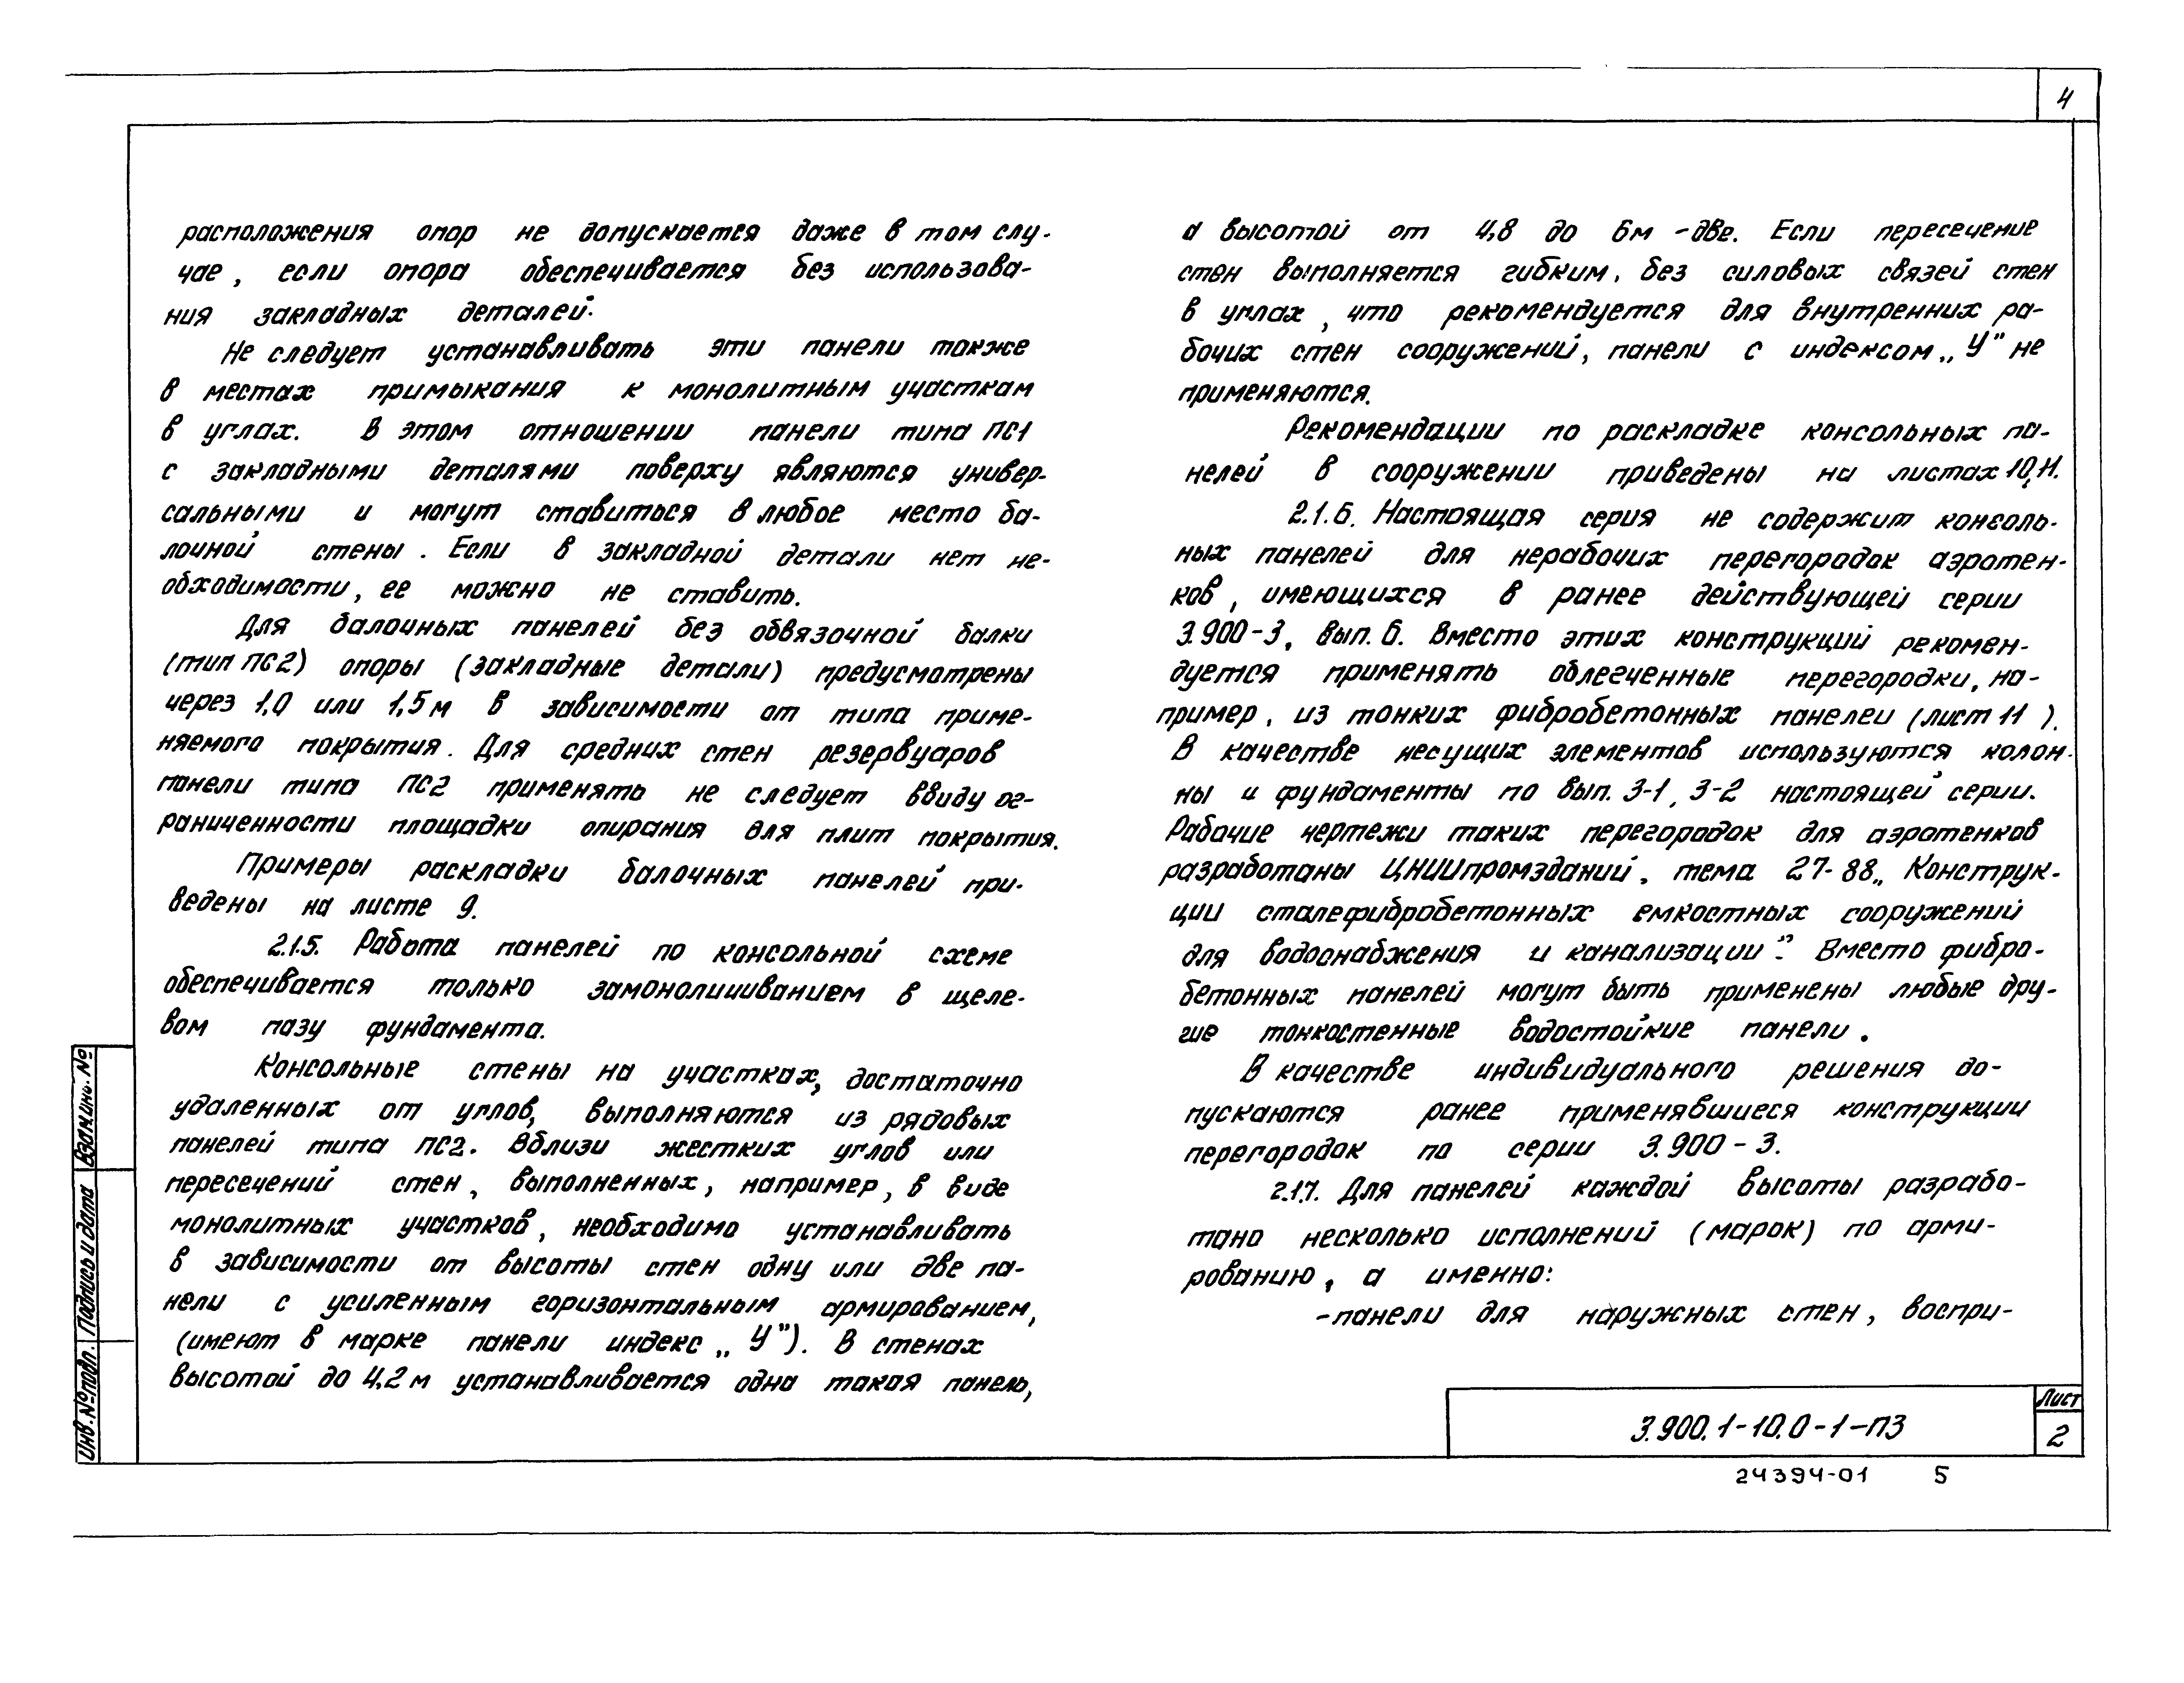 4
расположения опор не допускается даже в том слу-
чае, если опора обеспечивается без использова-
ния закладных деталей.
Не следует устанавливать эти панели также
в местах примыкания к монолитным участкам
в углах. В этом отношении панели типа ПС1
с закладными деталями поверху являются универ-
сальными и могут ставиться в любое место ба-
лочной стены. Если в закладной детали нет не-
обходимости, ее можно не ставить.
Для балочных панелей без обвязочной балки
(тип ПС2) опоры (закладные детали) предусмотрены
через 1,0 или 1,5м в зависимости от типа приме-
няемого покрытия. Для средних стен резервуаров
панели типа ПС2 применять не следует ввиду ог-
раниченности площадки опирания для плит покрытия.
Примеры раскладки балочных панелей при-
ведены на листе 9.
2.1.5. Работа панелей по консольной схеме
обеспечивается только замоноличиванием в щеле-
вом пазу фундамента.
Консольные стены на участках, достаточно
удаленных от углов, выполняются из рядовых
панелей типа ПС2. Вблизи жестких углов или
пересечений стен, выполненных, например, в виде
монолитных участков, необходимо устанавливать
в зависимости от высоты стен одну или две па-
нели с усиленным горизонтальным армированием,
(имеют в марке панели индекс „У"). В стенах
высотой до 4,2м устанавливается одна такая панель,
а высотой от 4,8 до 6м - две. Если пересечение
стен выполняется гибким, без силовых связей стен
в углах, что рекомендуется для внутренних ра-
бочих стен сооружений, панели с индексом „У" не
применяются.
Рекомендации по раскладке консольных па-
нелей в сооружении приведены на листах 10,11.
2.1.6. Настоящая серия не содержит консоль-
ных панелей для нерабочих перегородок аэротен-
ков, имеющихся в ранее действующей серии
3.900-3, вып. 6. Вместо этих конструкций рекомен-
дуется применять облегченные перегородки, на-
пример, из тонких фибробетонных панелей (лист 11).
В качестве несущих элементов используются колон-
ны и фундаменты по вып. 3-1, 3-2 настоящей серии.
Рабочие чертежи таких перегородок для аэротенков
разработаны ЦНИИпромзданий, тема 27-88 „Конструк-
ции сталефибробетонных емкостных сооружений
для водоснабжения и канализации". Вместо фибро-
бетонных панелей могут быть применены любые дру-
гие тонкостенные водостойкие панели.
В качестве индивидуального решения до-
пускаются ранее применявшиеся конструкции
перегородок по серии 3.900-3.
2.1.7. Для панелей каждой высоты разрабо-
тано несколько исполнений (марок) по арми-
рованию, а именно:
-панели для наружных стен, воспри-
Взам.инв. №
Подпись и дата
Инв. № подп.
3.900.1-10.0-1-ПЗ
Лист
2
24394-01 5